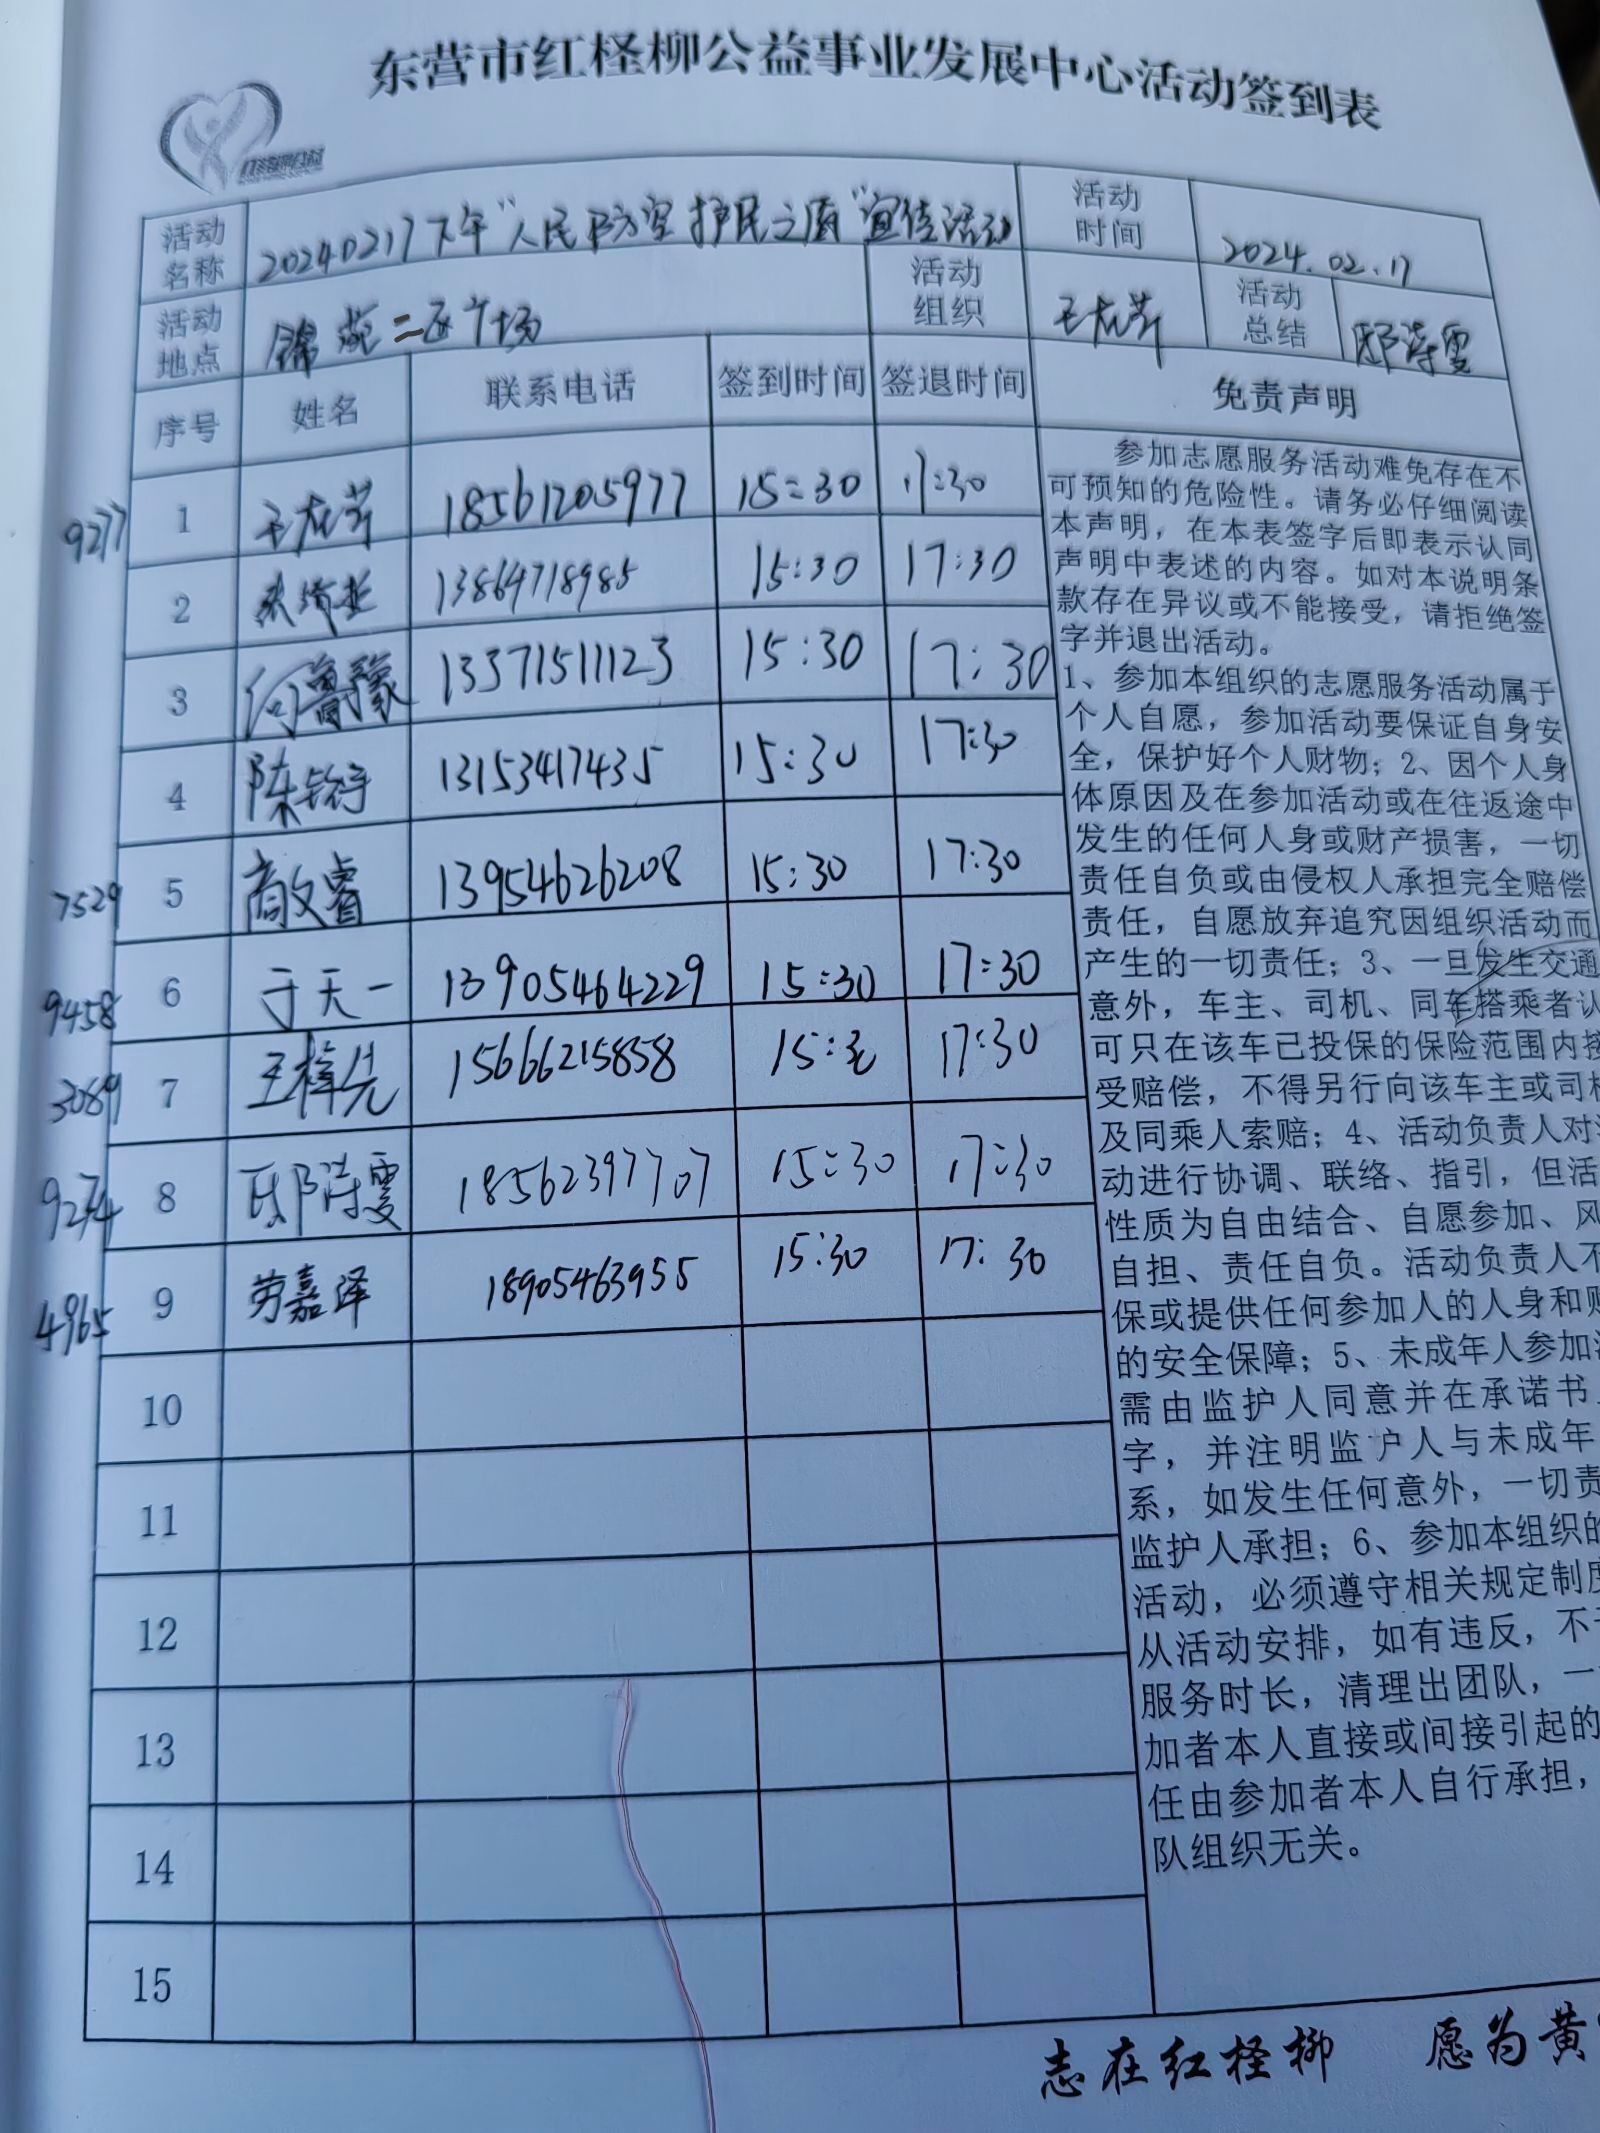 东营市红柽柳公益事业发展中心活动签到表
活动名称 20240217下午"人民防空 护民之盾"宣传活动 活动时间 2024.02.17
活动地点 锦苑二区广场 活动组织 王友芹 活动总结 邸诗雯
序号 姓名 联系电话 签到时间 签退时间 免责声明
9277 1 王友芹 18561205977 15:30 17:30
2 13864718985 15:30 17:30
3 何鲁豫 13371511123 15:30 17:30
4 陈铭宇 13153417435 15:30 17:30
7529 5 商文睿 13954626208 15:30 17:30
9458 6 于天一 13905464229 15:30 17:30
3089 7 王梓先 15666215858 15:30 17:30
9274 8 邸诗雯 18562397707 15:30 17:30
4965 9 劳嘉泽 18905463955 15:30 17:30
10
11
12
13
14
15
参加志愿服务活动难免存在不
可预知的危险性。请务必仔细阅读
本声明，在本表签字后即表示认同
声明中表述的内容。如对本说明条
款存在异议或不能接受，请拒绝签
字并退出活动。
1、参加本组织的志愿服务活动属于
个人自愿，参加活动要保证自身安
全，保护好个人财物；2、因个人身
体原因及在参加活动或在往返途中
发生的任何人身或财产损害，一切
责任自负或由侵权人承担完全赔偿
责任，自愿放弃追究因组织活动而
产生的一切责任；3、一旦发生交通
意外，车主、司机、同车搭乘者认
可只在该车已投保的保险范围内接
受赔偿，不得另行向该车主或司机
及同乘人索赔；4、活动负责人对活
动进行协调、联络、指引，但活
性质为自由结合、自愿参加、风
自担、责任自负。活动负责人不
保或提供任何参加人的人身和财
的安全保障；5、未成年人参加活
需由监护人同意并在承诺书上
字，并注明监护人与未成年
系，如发生任何意外，一切责
监护人承担；6、参加本组织的
活动，必须遵守相关规定制度
从活动安排，如有违反，不予
服务时长，清理出团队，一
加者本人直接或间接引起的
任由参加者本人自行承担，
队组织无关。
志在红柽柳 愿为黄